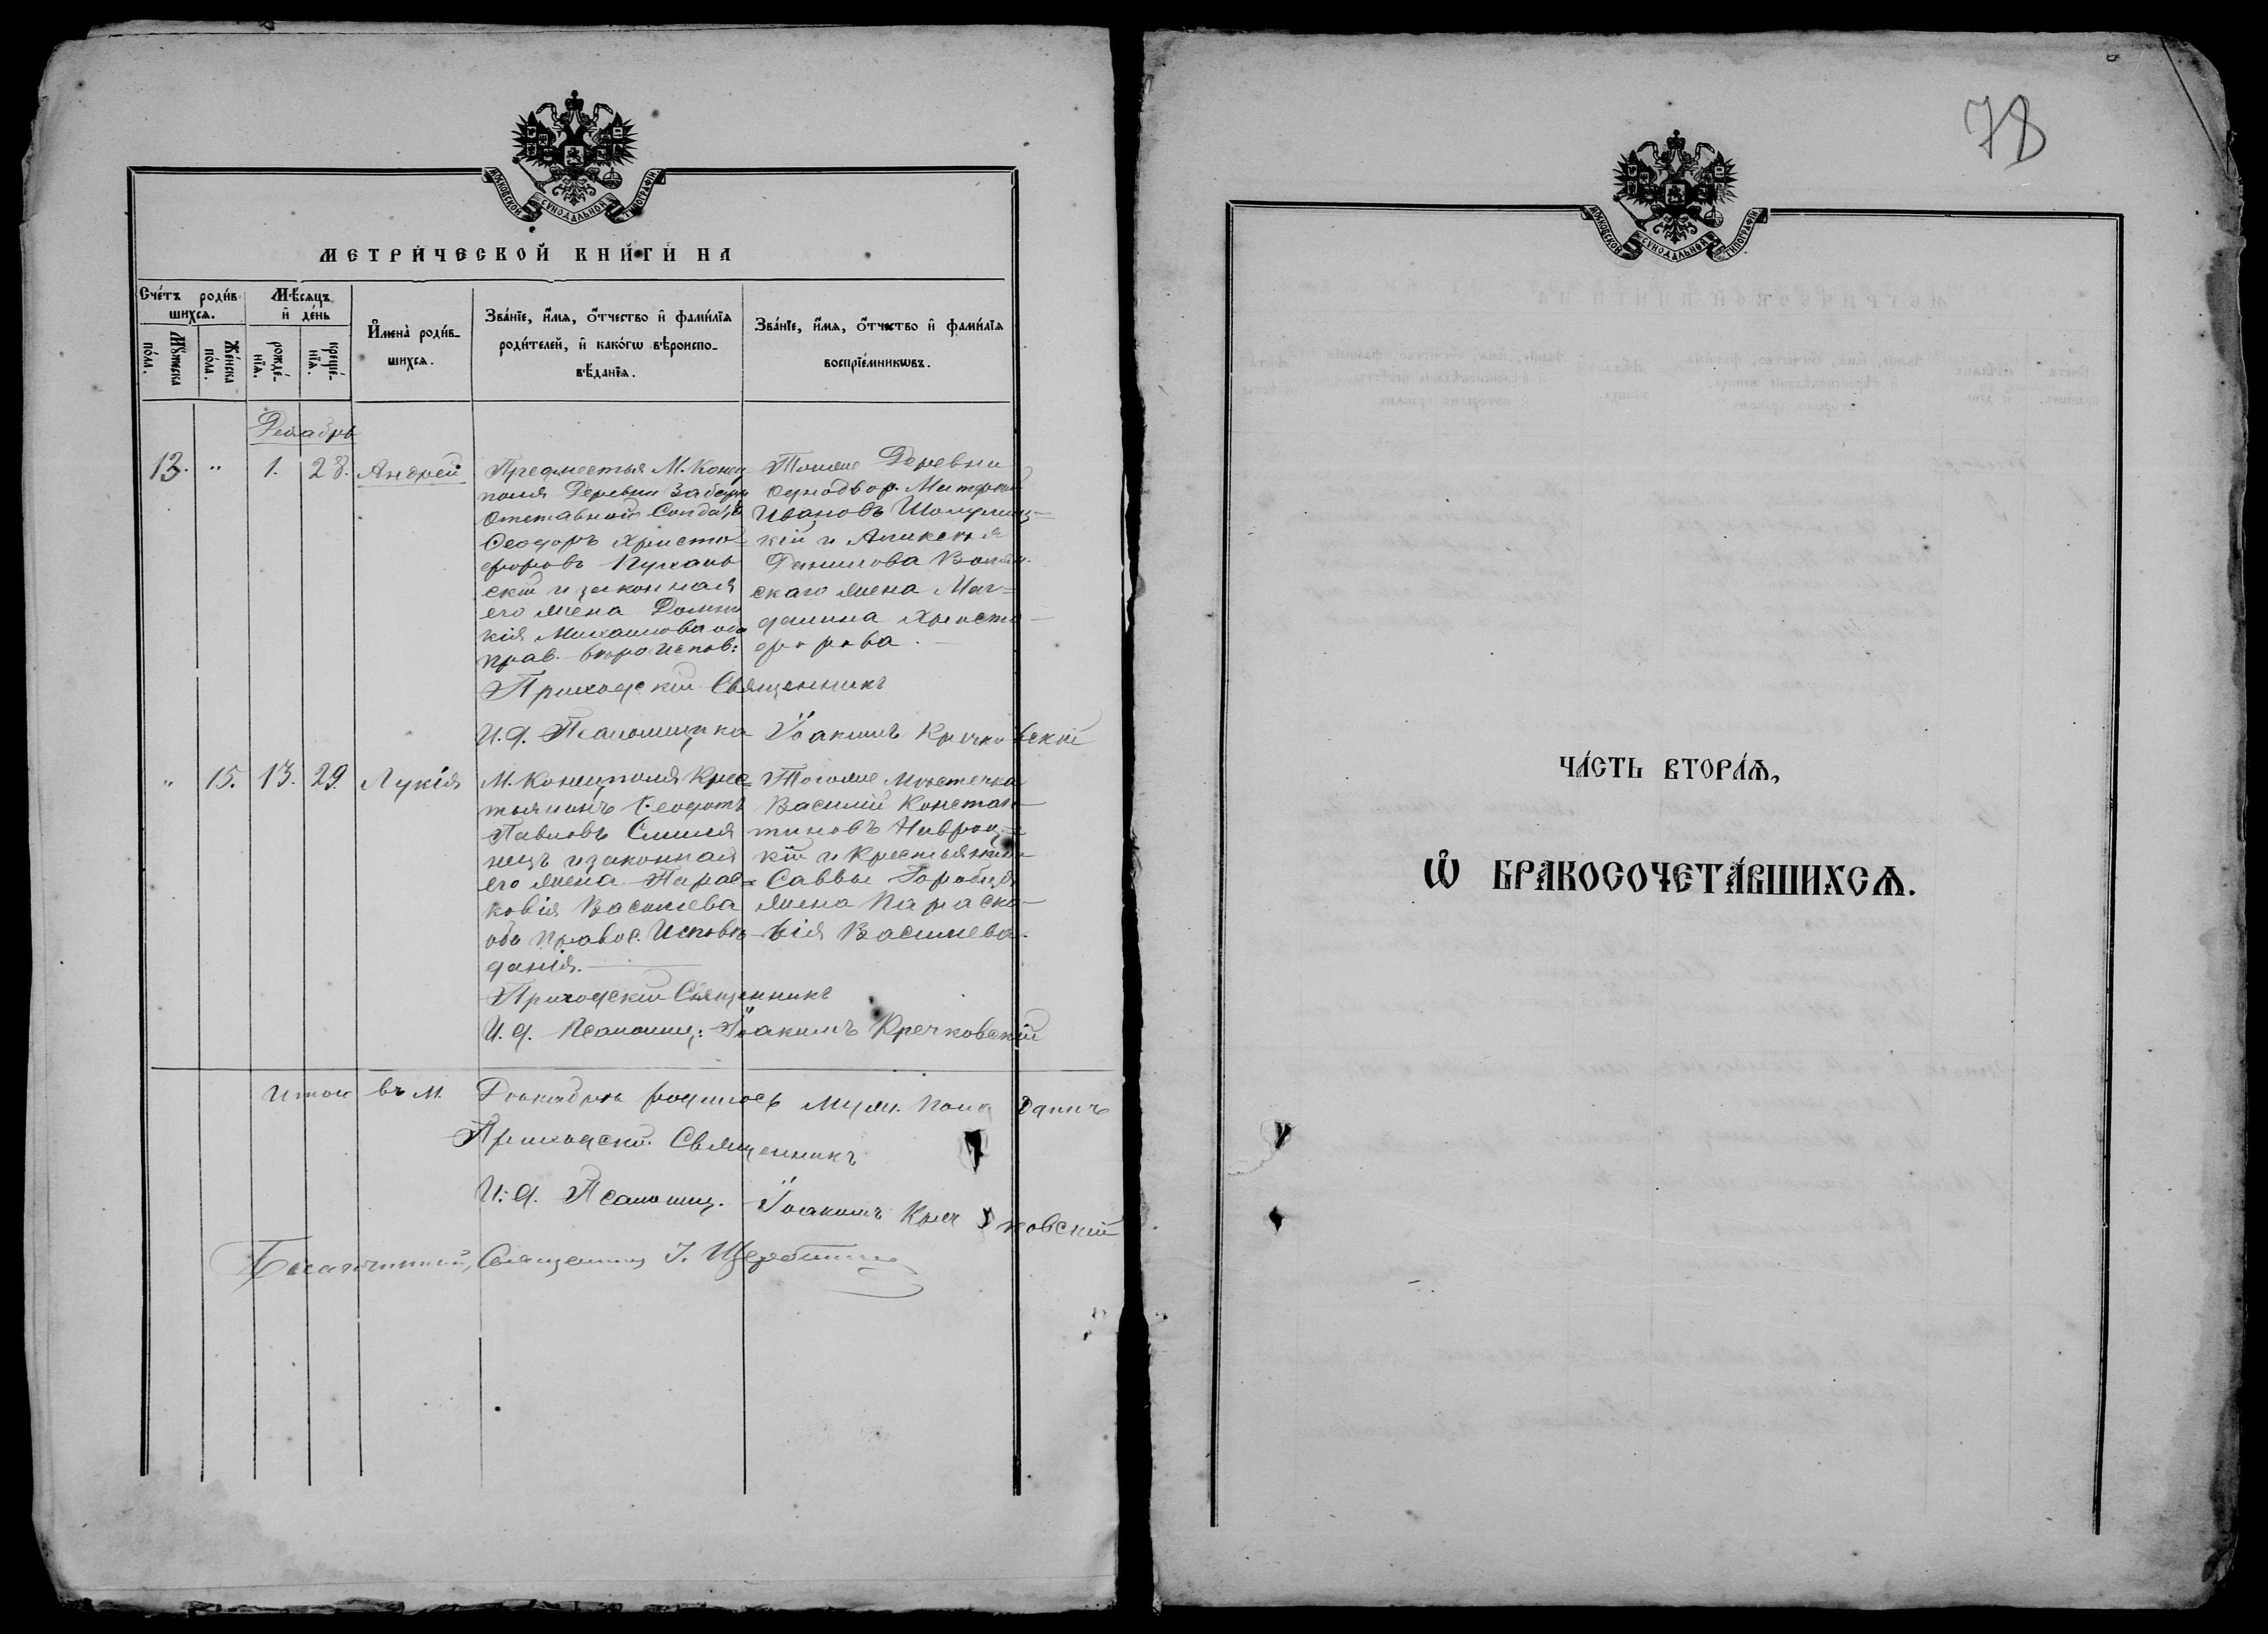 МОСКОВСКОЙ СѴНОДАЛЬНОЙ ТИПОГРАФІИ
МЕТРИ́ЧЕСКОЙ КНИ́ГИ НА
Сче́тъ роди́в-
шихсѧ.
Мꙋ́жеска
по́ла.
Же́нска
по́ла.
Мѣ́сѧцъ
и҆ де́нь
рожде́-
нїѧ.
креще́-
нїѧ.
И҆мена̀ роди́в-
шихсѧ.
Зва́нїе, и҆́мѧ, ѻ҆́тчество и҆ фами́лїѧ
роди́телей, и҆ како́гѡ вѣроиспо-
вѣ́данїѧ.
Зва́нїе, и҆́мѧ, ѻ҆́тчество и҆ фами́лїѧ
воспрїе́мникѡвъ.
Декабрь
13. " 1. 28. Андрей
Предместья М. Конец
поля Деревни
Отставной Солдатъ
Феодоръ Христо-
форовъ
скій и законная
его жена Домни
кія Михайлова оба
прав. вѣроиспов:
Тоиже Деревни
однодвор. Митрофан
Ивановъ
кій и
Данилова
скаго жена Маг=
далина Христо-
форова.
Приходскій Священникъ
И. д. Псаломщика Іоакимъ Кречковскій
" 15. 13. 29. Лукія
М. Конецполя Крес=
тьянинъ Феодотъ
Павловъ
нецъ и законная
его жена Парас=
ковія Васильева
оба правос. Исповѣ-
данія.
Тогоже Мѣстечка
Василій Констан-
тиновъ Навроц=
кій и Крестьянина
Саввы Горобца
жена Параско-
вія Васильева.
Приходскій Священникъ
И. д. Псаломщ: Іоакимъ Кречковскій
Итого въ М. Декабрѣ родилось муж. пола Одинъ
Приходскій Священникъ
И. д. Псаломщ. Іоакимъ Кречковскій
Благочинный, Священникъ І.
78
МОСКОВСКОЙ СѴНОДАЛЬНОЙ ТИПОГРАФІИ
ЧА́СТЬ ВТОРА́Ѧ,
Ѽ БРАКОСОЧЕТА́ВШИХСѦ.